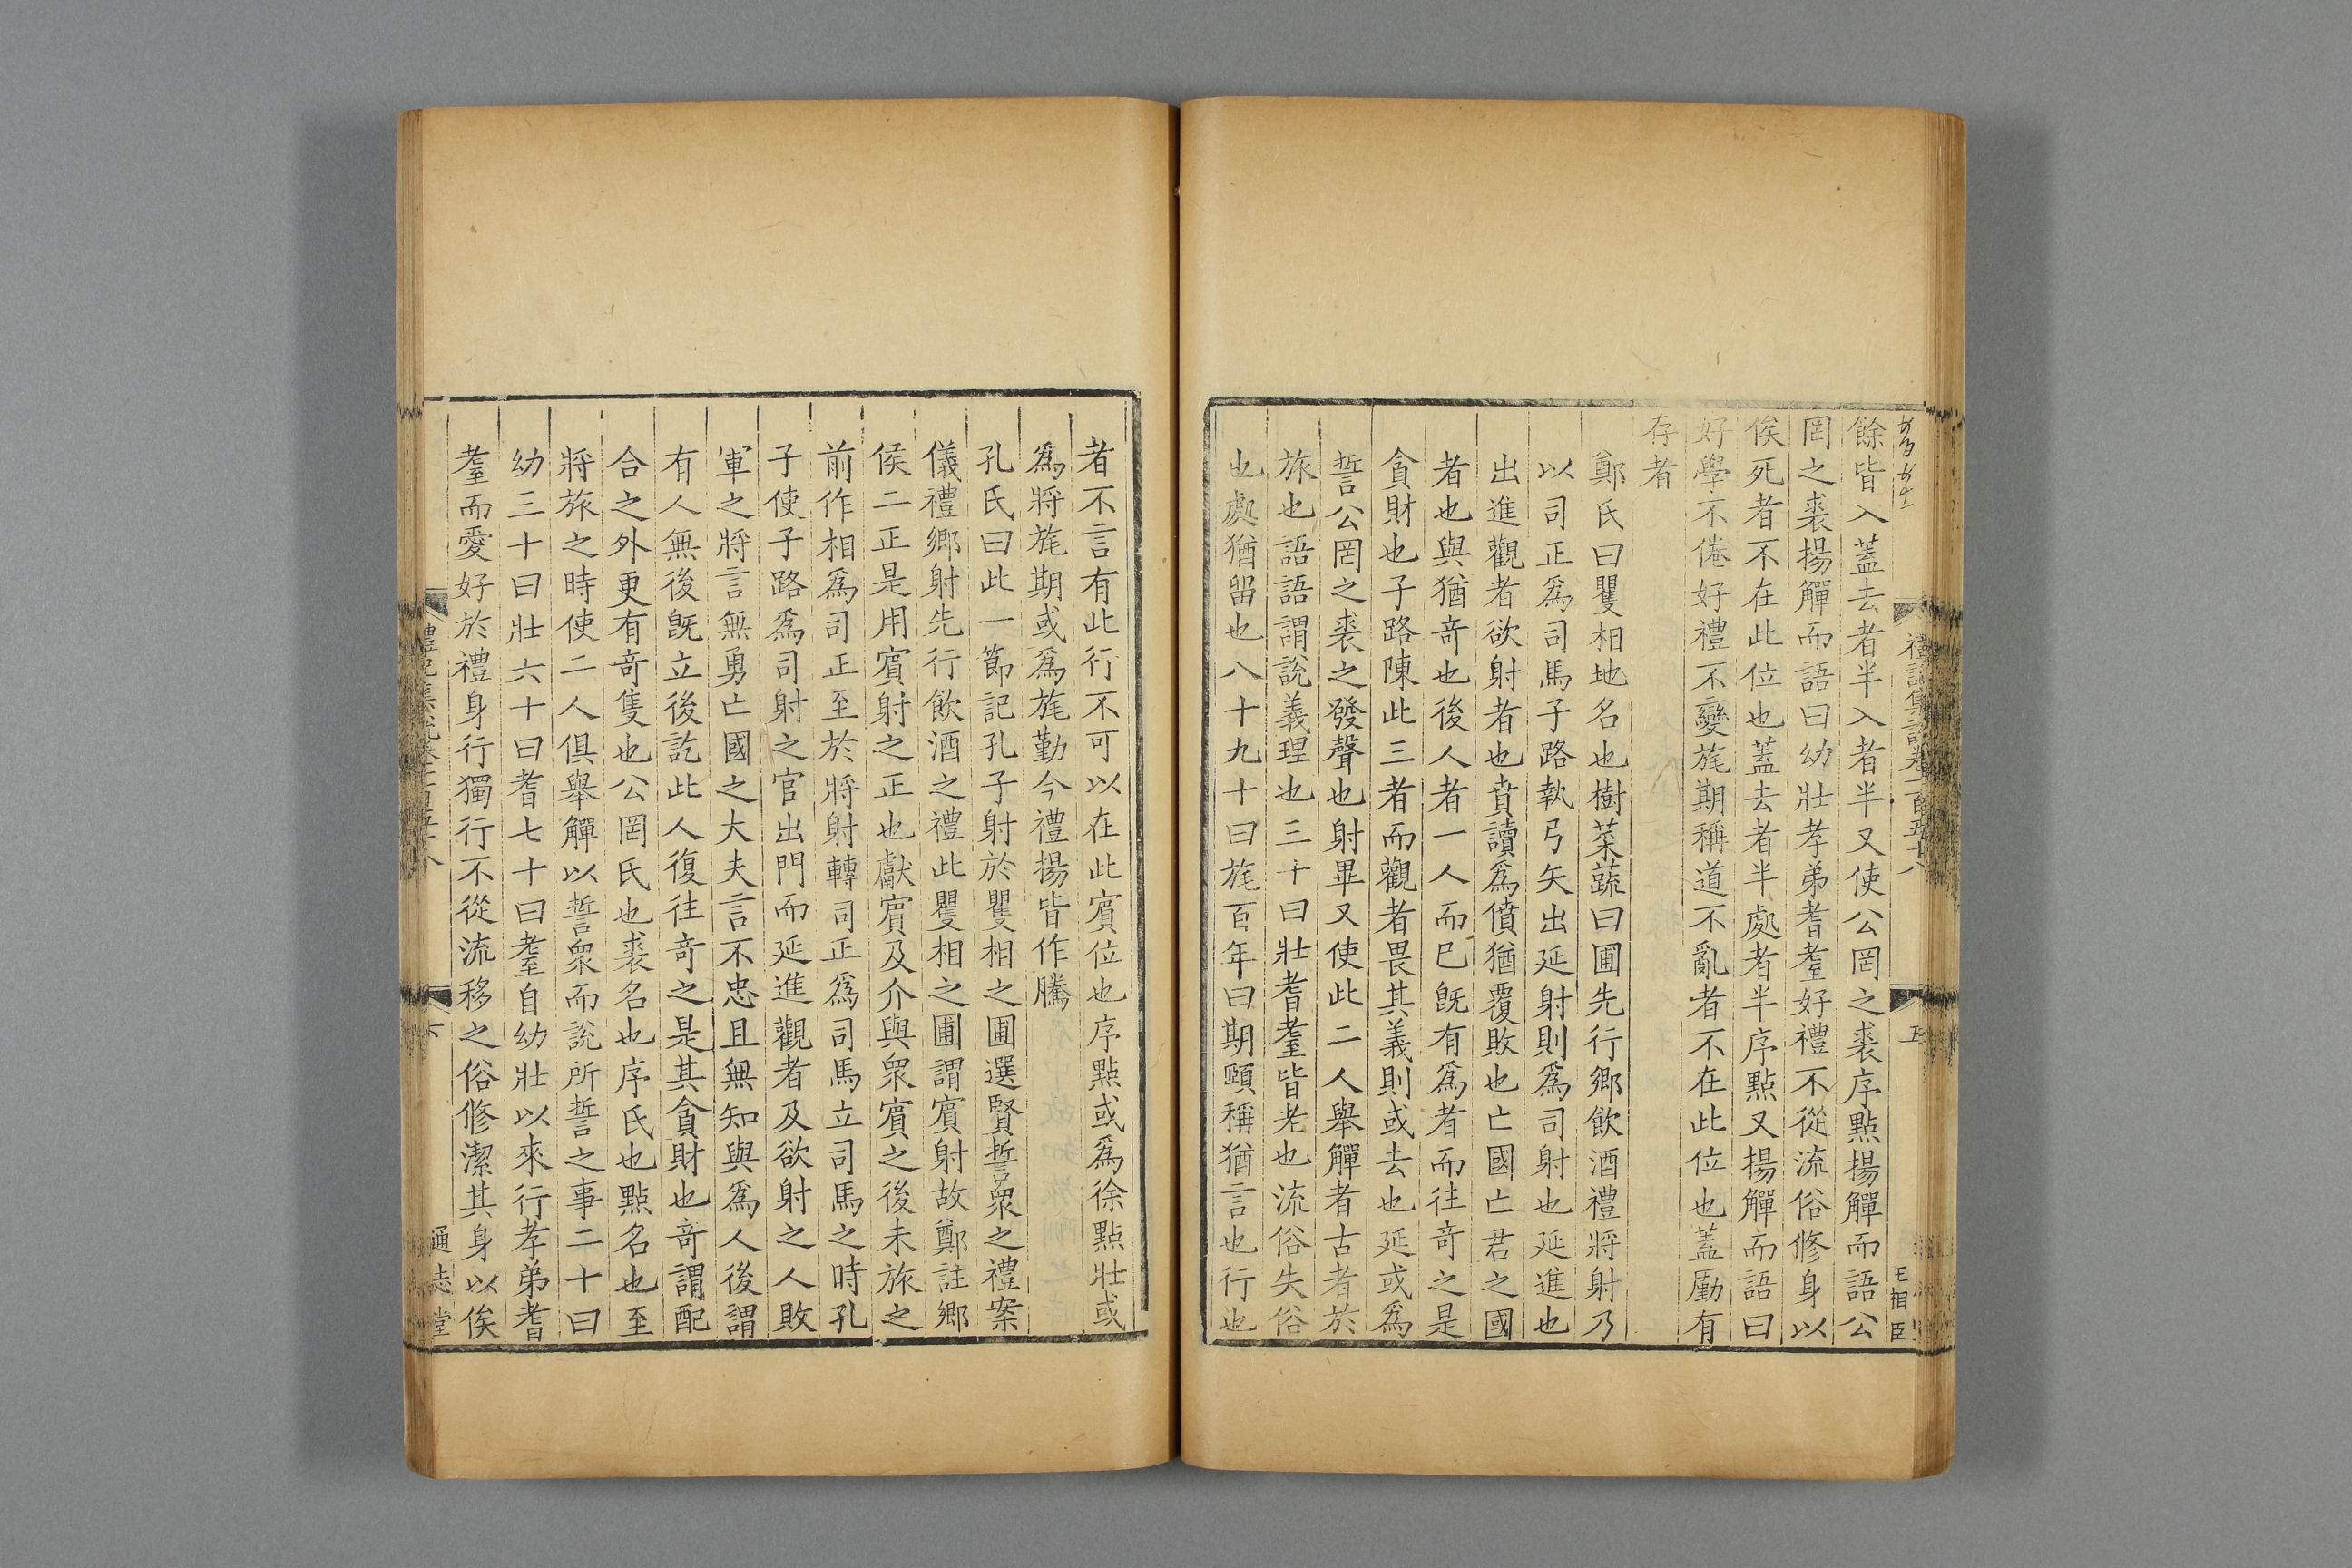 禮記集說卷一百五十八
五
王相臣
餘皆入蓋去者半入者半又使公罔之裘序點揚觶而語公
罔之裘揚觶而語曰幼壯孝弟耆耋好禮不從流俗修身以
俟死者不在此位也蓋去者半處者半序點又揚觶而語曰
好學不倦好禮不變旄期稱道不亂者不在此位也蓋㔢有
存者
鄭氏曰矍相地名也樹菜蔬曰圃先行鄉飲酒禮將射乃
以司正為司馬子路執弓矢出延射則為司射也延進也
出進觀者欲射者也賁讀為僨猶覆敗也亡國亡君之國
者也與猶奇也後人者一人而已旣有為者而往奇之是
貪財也子路陳此三者而觀者畏其義則或去也延或為
誓公罔之裘之發聲也射畢又使此二人舉觶者古者於
旅也語語謂說義理也三十曰壯耆耋皆老也流俗失俗
也處猶留也八十九十曰旄百年曰期頤稱猶言也行也
者不言有此行不可以在此賓位也序點或為徐點壯或
為將旄期或為旄勤今禮揚皆作騰
孔氏曰此一節記孔子射於矍相之圃選賢誓衆之禮案
儀禮鄉射先行飲酒之禮此矍相之圃謂賓射故鄭註鄉
侯二正是用賓射之正也獻賓及介與衆賓之後未旅之
前作相為司正至於將射轉司正為司馬立司馬之時孔
子使子路為司射之官出門而延進觀者及欲射之人敗
軍之將言無勇亡國之大夫言不忠且無知與為人後謂
有人無後旣立後訖此人復往奇之是其貪財也奇謂配
合之外更有奇隻也公罔氏也裘名也序氏也點名也至
將旅之時使二人俱舉觶以誓衆而說所誓之事二十曰
幼三十曰壯六十曰耆七十曰耋自幼壯以來行孝弟耆
耋而愛好於禮身行獨行不從流移之俗修潔其身以俟
禮記集說卷一百五十八
六
通志堂